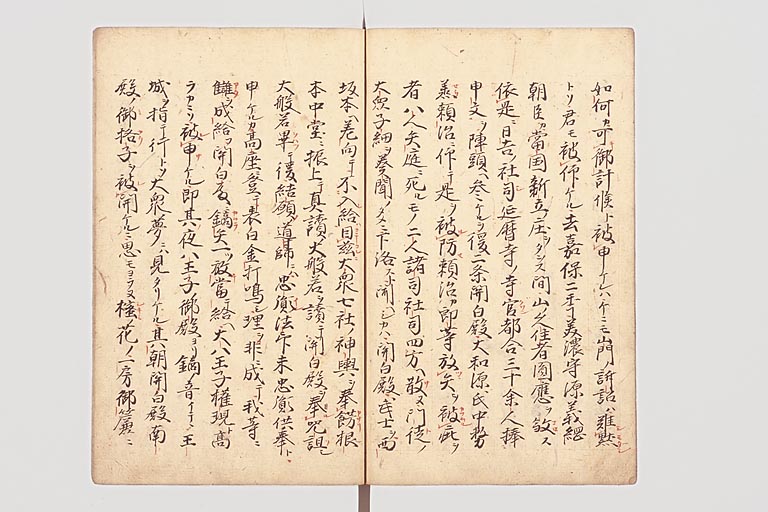 如何カ可御計候ト被申ケレハケニモ山門ノ訴訟ハ難黙
トソ君モ被仰ケル去嘉保二年美濃守源義綱
朝臣カ當国新立ノ庄ヲタヲス間山ノ久住者圓應ヲ殺ス
依是ニ日吉ノ社司延暦寺ノ寺官都合三十余人捧
申文ヲ陣頭ヘ参ケルヲ後二条関白殿大和源氏中務
丞頼治ニ作テ是ヲ被防頼治カ郎等放矢ヲ被疵ヲ
者八人矢庭ニ死ルモノ二人諸司社司四方ヘ散ヌ門徒ノ
大衆子細ヲ奏聞ノタメニ下洛ス聞シカハ関白殿武士ヲ西
坂本ヘ差向テ不入給目茲大衆七社ノ神輿ヲ奉餝根
本中堂ニ振上テ真讀ノ大般若ヲ讀テ関白殿ヲ奉呪詛シ
大般若畢テ後結願ノ道師ニハ忠胤法印未忠胤供奉ト
申ケルカ高座登テ表白金打鳴シ理ヲ非ニ成テ我等ニ
讎ヲ成給フ関白殿ニ鏑矢一ツ放當テ給ヘ大八王子権現ト高
ラカニソ被申ケル即其ノ夜八王子御殿ヨリ鏑ノ音イテテ王
城ヲ指テ行トソ大衆ノ夢ニハ見タリケル其ノ朝関白殿ノ南
殿ノ御格子ヲ被開ケルニ思モヨラヌ樒ノ花ノ一房御簾ニ